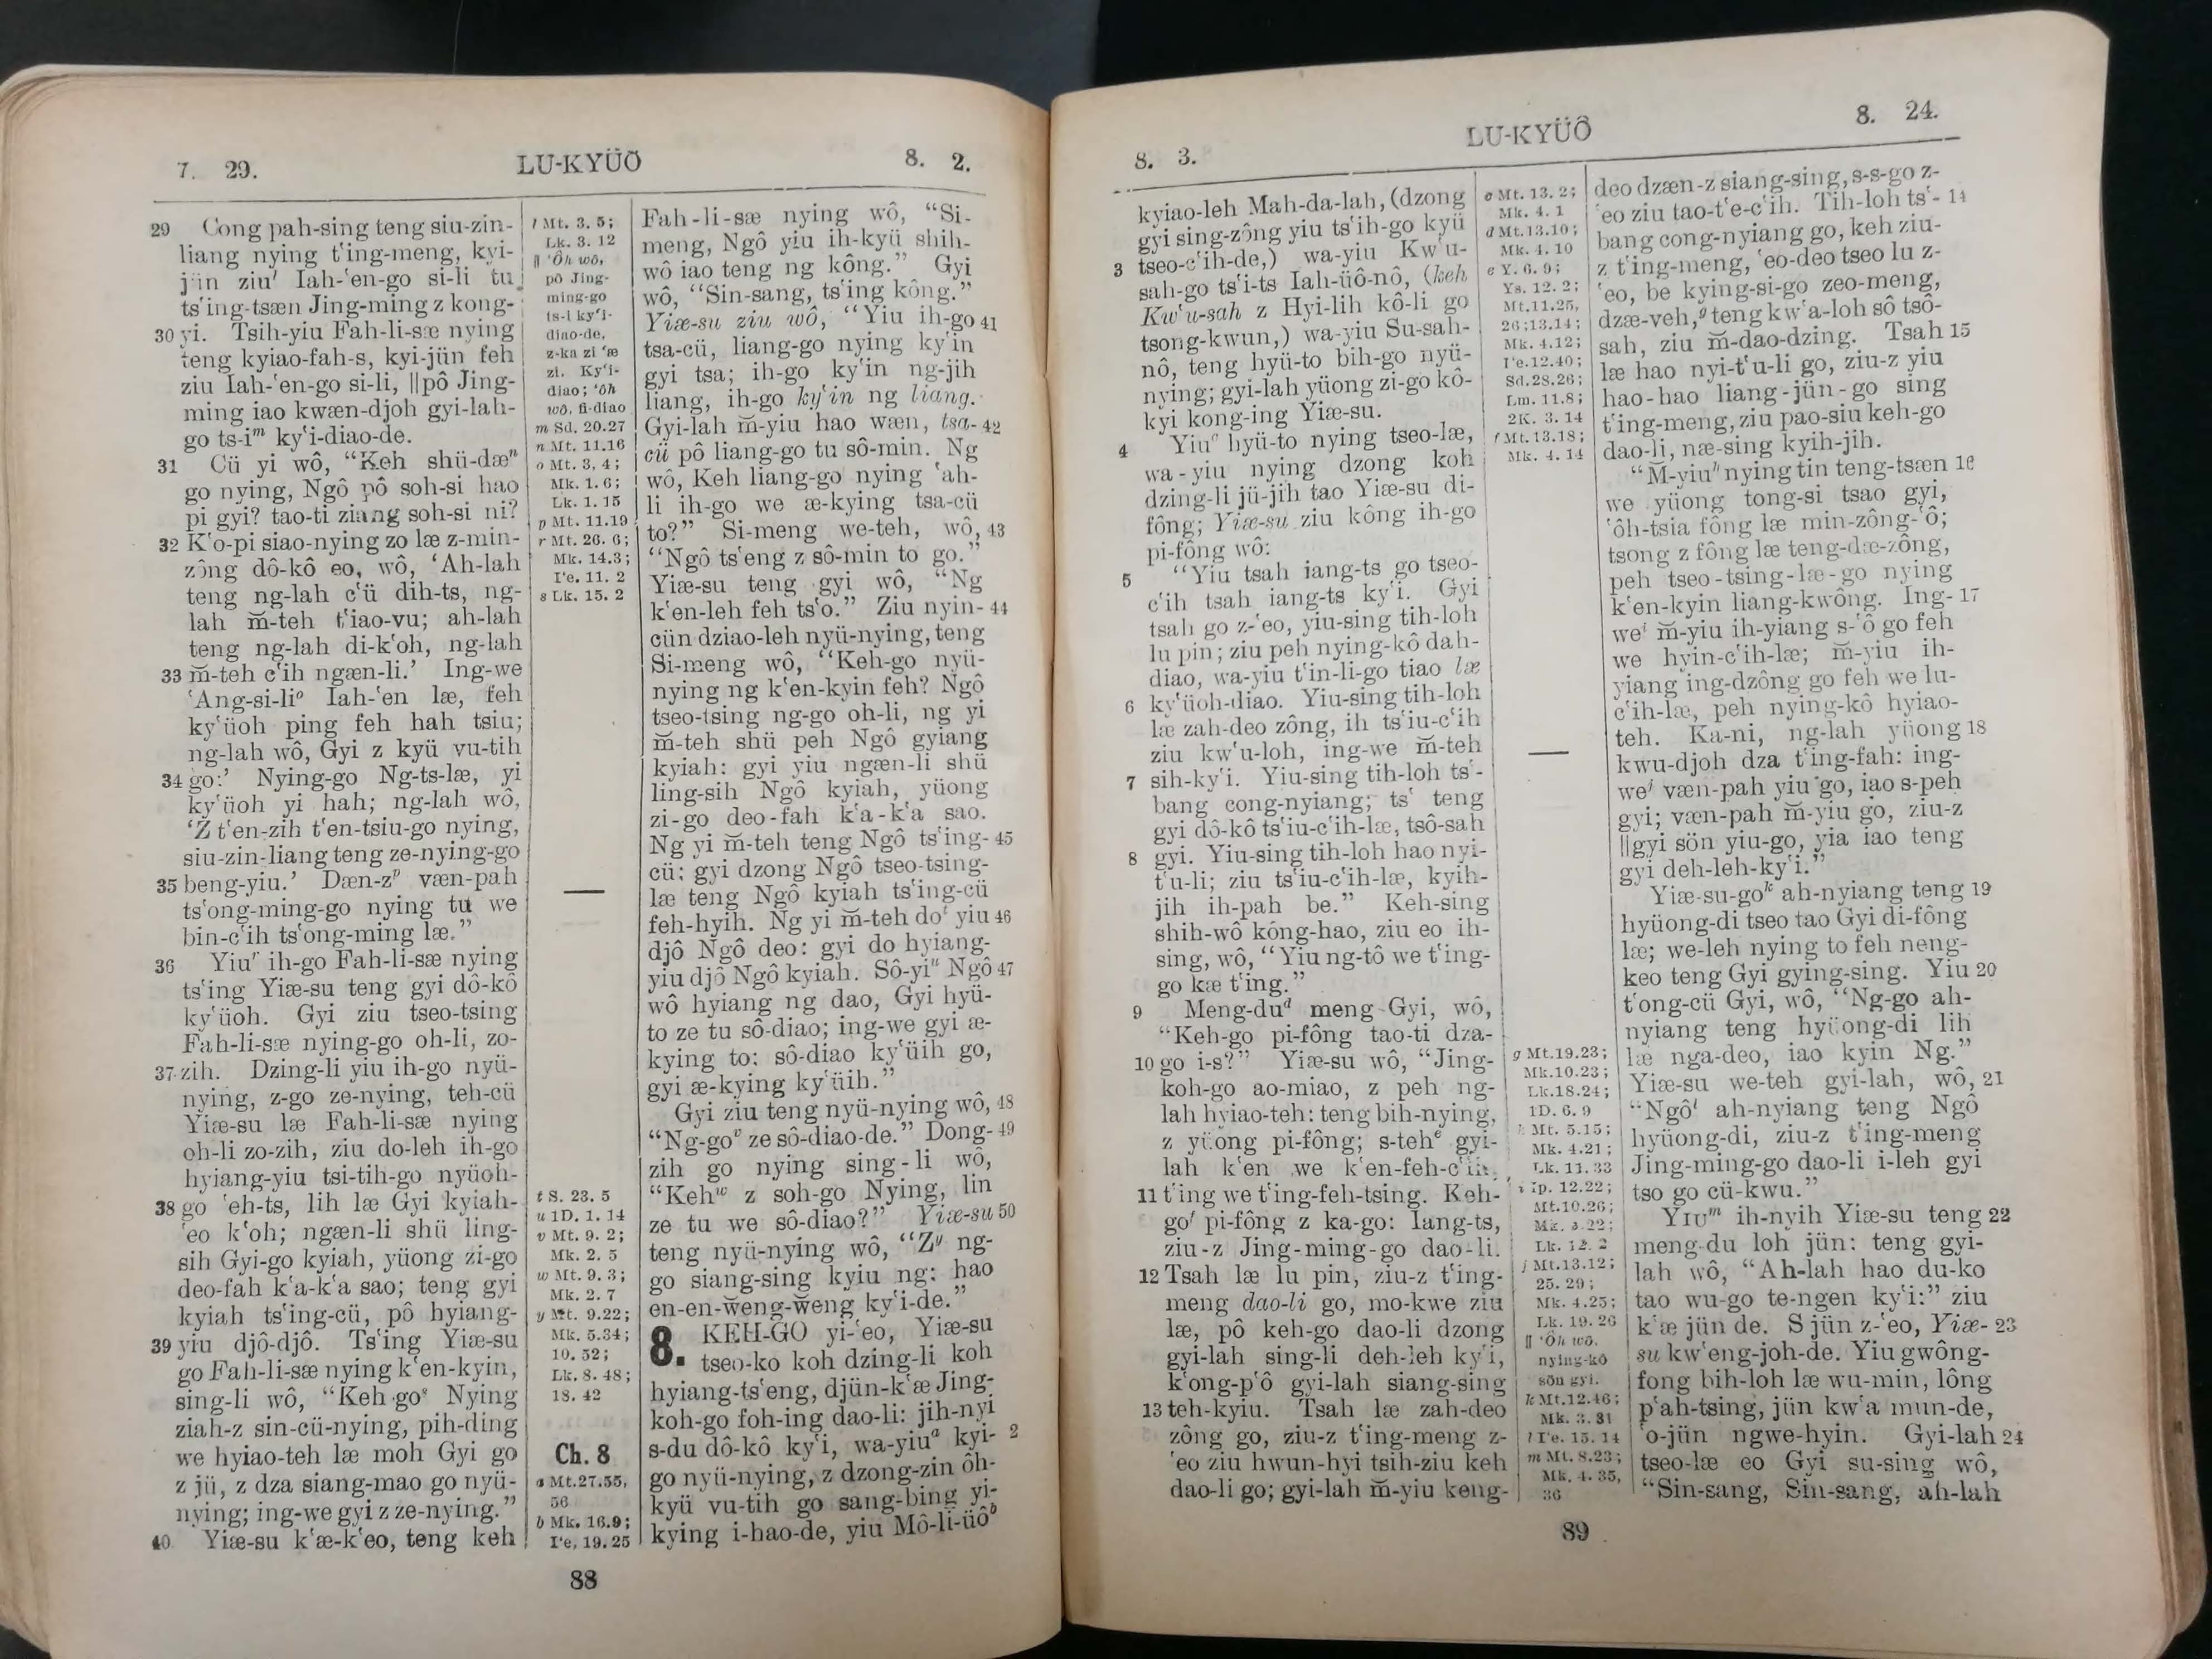 7. 29.
LU-KYÜÔ
8. 2.
29 Cong pah-sing teng siu-zin-
liang nying t‘ing-meng, kyi-
jün ziuˡ Iah-‘en-go si-li tu
ts‘ing-tsæn Jing-ming z kong-
30 yi. Tsih-yiu Fah-li-sæ nying
teng kyiao-fah-s, kyi-jün feh
ziu Iah-‘en-go si-li, ‖pô Jing-
ming iao kwæn-djoh gyi-lah-
go ts-iᵐ ky‘i-diao-de.
31 Cü yi wô, “Keh shü-dæⁿ
go nying, Ngô pô soh-si hao
pi gyi? tao-ti ziang soh-si ni?
32 K‘o-pi siao-nying zo læ z-min-
zông dô-kô eo, wô, ‘Ah-lah
teng ng-lah c‘ü dih-ts, ng-
lah m̆-teh t‘iao-vu; ah-lah
teng ng-lah di-k‘oh, ng-lah
33 m̆-teh c‘ih ngæn-li.’ Ing-we
‘Ang-si-liᵒ Iah-‘en læ, feh
ky‘üoh ping feh hah tsiu;
ng-lah wô, Gyi z kyü vu-tih
34 go:’ Nying-go Ng-ts-læ, yi
ky‘üoh yi hah; ng-lah wô,
‘Z t‘en-zih t‘en-tsiu-go nying,
siu-zin-liang teng ze-nying-go
35 beng-yiu.’ Dæn-zᵖ væn-pah
ts‘ong-ming-go nying tu we
bin-c‘ih ts‘ong-ming læ.”
36 Yiuʳ ih-go Fah-li-sæ nying
ts‘ing Yiæ-su teng gyi dô-kô
ky‘üoh. Gyi ziu tseo-tsing
Fah-li-sæ nying-go oh-li, zo-
37 zih. Dzing-li yiu ih-go nyü-
nying, z-go ze-nying, teh-cü
Yiæ-su læ Fah-li-sæ nying
oh-li zo-zih, ziu do-leh ih-go
hyiang-yiu tsi-tih-go nyüoh-
38 go ‘eh-ts, lih læ Gyi kyiah-
‘eo k‘oh; ngæn-li shü ling-
sih Gyi-go kyiah, yüong zi-go
deo-fah k‘a-k‘a sao; teng gyi
kyiah ts‘ing-cü, pô hyiang-
39 yiu djô-djô. Ts‘ing Yiæ-su
go Fah-li-sæ nying k‘en-kyin,
sing-li wô, “Keh-goˢ Nying
ziah-z sin-cü-nying, pih-ding
we hyiao-teh læ moh Gyi go
z jü, z dza siang-mao go nyü-
nying; ing-we gyi z ze-nying.”
40 Yiæ-su k‘æ-k‘eo, teng keh
l Mt. 3. 5;
Lk. 3. 12
‖ ‘Ôh wô,
pô Jing-
ming-go
ts-i ky‘i-
diao-de,
z-ka zi ‘æ
zi. Ky‘i-
diao; ‘ôh
wô, fi-diao
m Sd. 20.27
n Mt. 11.16
o Mt. 3. 4;
Mk. 1. 6;
Lk. 1. 15
p Mt. 11.19
r Mt. 26. 6;
Mk. 14.3;
I‘e. 11. 2
s Lk. 15. 2
t S. 23. 5
u 1D. 1. 14
v Mt. 9. 2;
Mk. 2. 5
w Mt. 9. 3;
Mk. 2. 7
y Mt. 9.22;
Mk. 5.34;
10. 52;
Lk. 8. 48;
18. 42
Ch. 8
a Mt.27.55,
56
b Mk. 16.9;
I‘e. 19. 25
Fah-li-sæ nying wô, “Si-
meng, Ngô yiu ih-kyü shih-
wô iao teng ng kông.” Gyi
wô, “Sin-sang, ts‘ing kông.”
Yiæ-su ziu wô, “Yiu ih-go 41
tsa-cü, liang-go nying ky‘in
gyi tsa; ih-go ky‘in ng-jih
liang, ih-go ky‘in ng liang.
Gyi-lah m̆-yiu hao wæn, tsa- 42
cü pô liang-go tu sô-min. Ng
wô, Keh liang-go nying ‘ah-
li ih-go we æ-kying tsa-cü
to?” Si-meng we-teh, wô, 43
“Ngô ts‘eng z sô-min to go.”
Yiæ-su teng gyi wô, “Ng
k‘en-leh feh ts‘o.” Ziu nyin- 44
cün dziao-leh nyü-nying, teng
Si-meng wô, “Keh-go nyü-
nying ng k‘en-kyin feh? Ngô
tseo-tsing ng-go oh-li, ng yi
m̆-teh shü peh Ngô gyiang
kyiah: gyi yiu ngæn-li shü
ling-sih Ngô kyiah, yüong
zi-go deo-fah k‘a-k‘a sao.
Ng yi m̆-teh teng Ngô ts‘ing- 45
cü: gyi dzong Ngô tseo-tsing-
læ teng Ngô kyiah ts‘ing-cü
feh-hyih. Ng yi m̆-teh doᵗ yiu 46
djô Ngô deo: gyi do hyiang-
yiu djô Ngô kyiah. Sô-yiᵘ Ngô 47
wô hyiang ng dao, Gyi hyü-
to ze tu sô-diao; ing-we gyi æ-
kying to: sô-diao ky‘üih go,
gyi æ-kying ky‘üih.”
Gyi ziu teng nyü-nying wô, 48
“Ng-goᵛ ze sô-diao-de.” Dong- 49
zih go nying sing-li wô,
“Kehʷ z soh-go Nying, lin
ze tu we sô-diao?” Yiæ-su 50
teng nyü-nying wô, “Zʸ ng-
go siang-sing kyiu ng: hao
en-en-w̆eng-w̆eng ky‘i-de.”
8. KEH-GO yi-‘eo, Yiæ-su
tseo-ko koh dzing-li koh
hyiang-ts‘eng, djün-k‘æ Jing-
koh-go foh-ing dao-li: jih-nyi
s-du dô-kô ky‘i, wa-yiuᵃ kyi- 2
go nyü-nying, z dzong-zin ôh-
kyü vu-tih go sang-bing yi-
kying i-hao-de, yiu Mô-li-üôᵇ
88
8. 3.
LU-KYÜÔ
8. 24.
kyiao-leh Mah-da-lah, (dzong
gyi sing-zông yiu ts‘ih-go kyü
3 tseo-c‘ih-de,) wa-yiu Kw‘u-
sah-go ts‘i-ts Iah-üô-nô, (keh
Kw‘u-sah z Hyi-lih kô-li go
tsong-kwun,) wa-yiu Su-sah-
nô, teng hyü-to bih-go nyü-
nying; gyi-lah yüong zi-go kô-
kyi kong-ing Yiæ-su.
4 Yiuᶜ hyü-to nying tseo-læ,
wa-yiu nying dzong koh
dzing-li jü-jih tao Yiæ-su di-
fông; Yiæ-su ziu kông ih-go
pi-fông wô:
5 “Yiu tsah iang-ts go tseo-
c‘ih tsah iang-ts ky‘i. Gyi
tsah go z-‘eo, yiu-sing tih-loh
lu pin; ziu peh nying-kô dah-
diao, wa-yiu t‘in-li-go tiao læ
6 ky‘üoh-diao. Yiu-sing tih-loh
læ zah-deo zông, ih ts‘iu-c‘ih
ziu kw‘u-loh, ing-we m̆-teh
7 sih-ky‘i. Yiu-sing tih-loh ts‘-
bang cong-nyiang; ts‘ teng
gyi dô-kô ts‘iu-c‘ih-læ, tsô-sah
8 gyi. Yiu-sing tih-loh hao nyi-
t‘u-li; ziu ts‘iu-c‘ih-læ, kyih-
jih ih-pah be.” Keh-sing
shih-wô kông-hao, ziu eo ih-
sing, wô, “Yiu ng-tô we t‘ing-
go kæ t‘ing.”
9 Meng-duᵈ meng Gyi, wô,
“Keh-go pi-fông tao-ti dza-
10 go i-s?” Yiæ-su wô, “Jing-
koh-go ao-miao, z peh ng-
lah hyiao-teh: teng bih-nying,
z yüong pi-fông; s-tehᵉ gyi-
lah k‘en we k‘en-feh-c‘ih,
11 t‘ing we t‘ing-feh-tsing. Keh-
goᶠ pi-fông z ka-go: Iang-ts,
ziu-z Jing-ming-go dao-li.
12 Tsah læ lu pin, ziu-z t‘ing-
meng dao-li go, mo-kwe ziu
læ, pô keh-go dao-li dzong
gyi-lah sing-li deh-leh ky‘i,
k‘ong-p‘ô gyi-lah siang-sing
13 teh-kyiu. Tsah læ zah-deo
zông go, ziu-z t‘ing-meng z-
‘eo ziu hwun-hyi tsih-ziu keh
dao-li go; gyi-lah m̆-yiu keng-
Mt. 13. 2;
Mk. 4. 1
d Mt.13.10;
Mk. 4. 10
e Y. 6. 9;
Ys. 12. 2;
Mt.11.25,
26;13.14;
Mk. 4.12;
I‘e.12.40;
Sd.28.26;
Lm. 11.8;
2K. 3. 14
f Mt.13.18;
Mk. 4. 14
g Mt.19.23;
Mk.10.23;
Lk.18.24;
1D. 6. 9
h Mt. 5.15;
Mk. 4.21;
Lk. 11. 33
i Ip. 12.22;
Mt.10.26;
Mk. 4.22;
Lk. 12. 2
j Mt.13.12;
25. 29;
Mk. 4.25;
Lk. 19. 26
‖ ‘Ôh wô,
nying-kô
sön gyi.
k Mt.12.46;
Mk. 3. 31
l I‘e. 15. 14
m Mt. 8.23;
Mk. 4. 35,
36
deo dzæn-z siang-sing, s-s-go z-
‘eo ziu tao-t‘e-c‘ih. Tih-loh ts‘- 14
bang cong-nyiang go, keh ziu-
z t‘ing-meng, ‘eo-deo tseo lu z-
‘eo, be kying-si-go zeo-meng,
dzæ-veh,ᵍ teng kw‘a-loh sô tsô-
sah, ziu m̆-dao-dzing. Tsah 15
læ hao nyi-t‘u-li go, ziu-z yiu
hao-hao liang-jün-go sing
t‘ing-meng, ziu pao-siu keh-go
dao-li, næ-sing kyih-jih.
“M̆-yiuʰ nying tin teng-tsæn 16
we yüong tong-si tsao gyi,
‘ôh-tsia fông læ min-zông-‘ô;
tsong z fông læ teng-dæ-zông,
peh tseo-tsing-læ-go nying
k‘en-kyin liang-kwông. Ing- 17
weⁱ m̆-yiu ih-yiang s-‘ô go feh
we hyin-c‘ih-læ; m̆-yiu ih-
yiang ing-dzông go feh we lu-
c‘ih-læ, peh nying-kô hyiao-
teh. Ka-ni, ng-lah yüong 18
kwu-djoh dza t‘ing-fah: ing-
weʲ væn-pah yiu go, iao s-peh
gyi; væn-pah m̆-yiu go, ziu-z
‖gyi sön yiu-go, yia iao teng
gyi deh-leh-ky‘i.”
Yiæ-su-goᵏ ah-nyiang teng 19
hyüong-di tseo tao Gyi di-fông
læ; we-leh nying to feh neng-
keo teng Gyi gying-sing. Yiu 20
t‘ong-cü Gyi, wô, “Ng-go ah-
nyiang teng hyüong-di lih
læ nga-deo, iao kyin Ng.”
Yiæ-su we-teh gyi-lah, wô, 21
“Ngôˡ ah-nyiang teng Ngô
hyüong-di, ziu-z t‘ing-meng
Jing-ming-go dao-li i-leh gyi
tso go cü-kwu.”
YIUᵐ ih-nyih Yiæ-su teng 22
meng-du loh jün: teng gyi-
lah wô, “Ah-lah hao du-ko
tao wu-go te-ngen ky‘i:” ziu
k‘æ jün de. S jün z-‘eo, Yiæ- 23
su kw‘eng-joh-de. Yiu gwông-
fong bih-loh læ wu-min, lông
p‘ah-tsing, jün kw‘a mun-de,
‘o-jün ngwe-hyin. Gyi-lah 24
tseo-læ eo Gyi su-sing wô,
“Sin-sang, Sin-sang, ah-lah
89